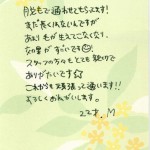 脱毛で通わせてもらってます!
まだ長くはないんですが
あまり毛が生えてこなくなり、
効果がすごいです☺
スタッフの方々もとても親切で
ありがたいです☆
これからも頑張って通います!!
よろしくおねがいします。
22才. M